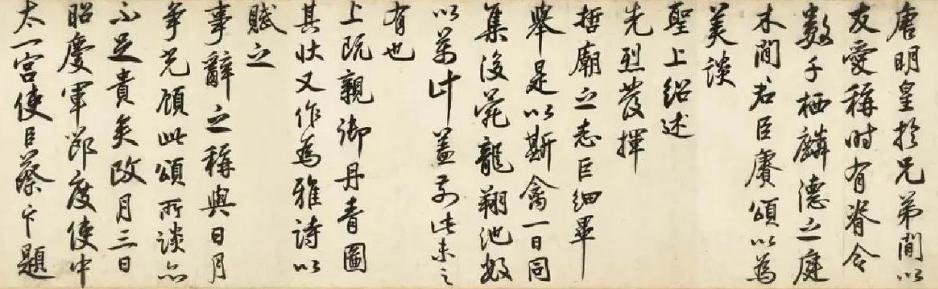 唐明皇於兄弟間以
友愛稱时有脊令
數千栖麟德之庭
木間君臣賡頌以為
美談
聖上紹述
先烈發揮
哲廟之志巨細畢
舉是以斯禽一日同
集後苑龍翔池數
以萬計蓋前此未之
有也
上既親御丹青圖
其狀又作為雅詩以
賦之
事辭之稱與日月
爭光顧此頌所談亦
不足貴矣政月三日
昭慶軍節度使中
太一宮使臣蔡卞題